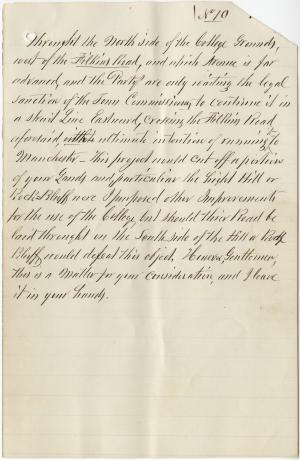 No 10
throught the North side of the College Grounds,
west of the Filkins Road, and which Avenue is far
advanced, and the Partys are only waiting the legal
sanction of the Town Commissioners to continue it in
a strait Line Eastward, crossing the Filkins Road
aforesaid with ultimate intention of running to
Manchester. This project would cut off a portion
of your Lands and particular the Light Hill or
Rock Bluff were I purposed other Improvements
for the use of the College, but should their Road be
laid throught on the South side of the Hill or Rock
Bluff, would defeat this object. However, Gentlemen,
this is a Matter for your consideration, and I leave
it in your hands.